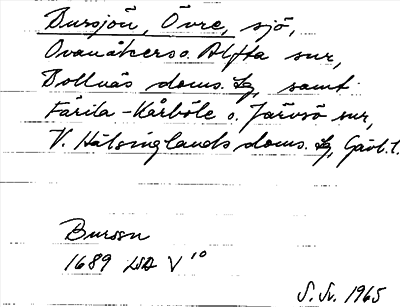 Bursjön, Övre, sjö,
Ovanåkers o. Alfta sn r,
Bollnäs doms. lg, samt
Färila-Kårböle o. Järvsö sn r,
V. Hälsinglands doms. lg, Gävl. l.
Burssn
1689 LSA V 10
S. Sv. 1965